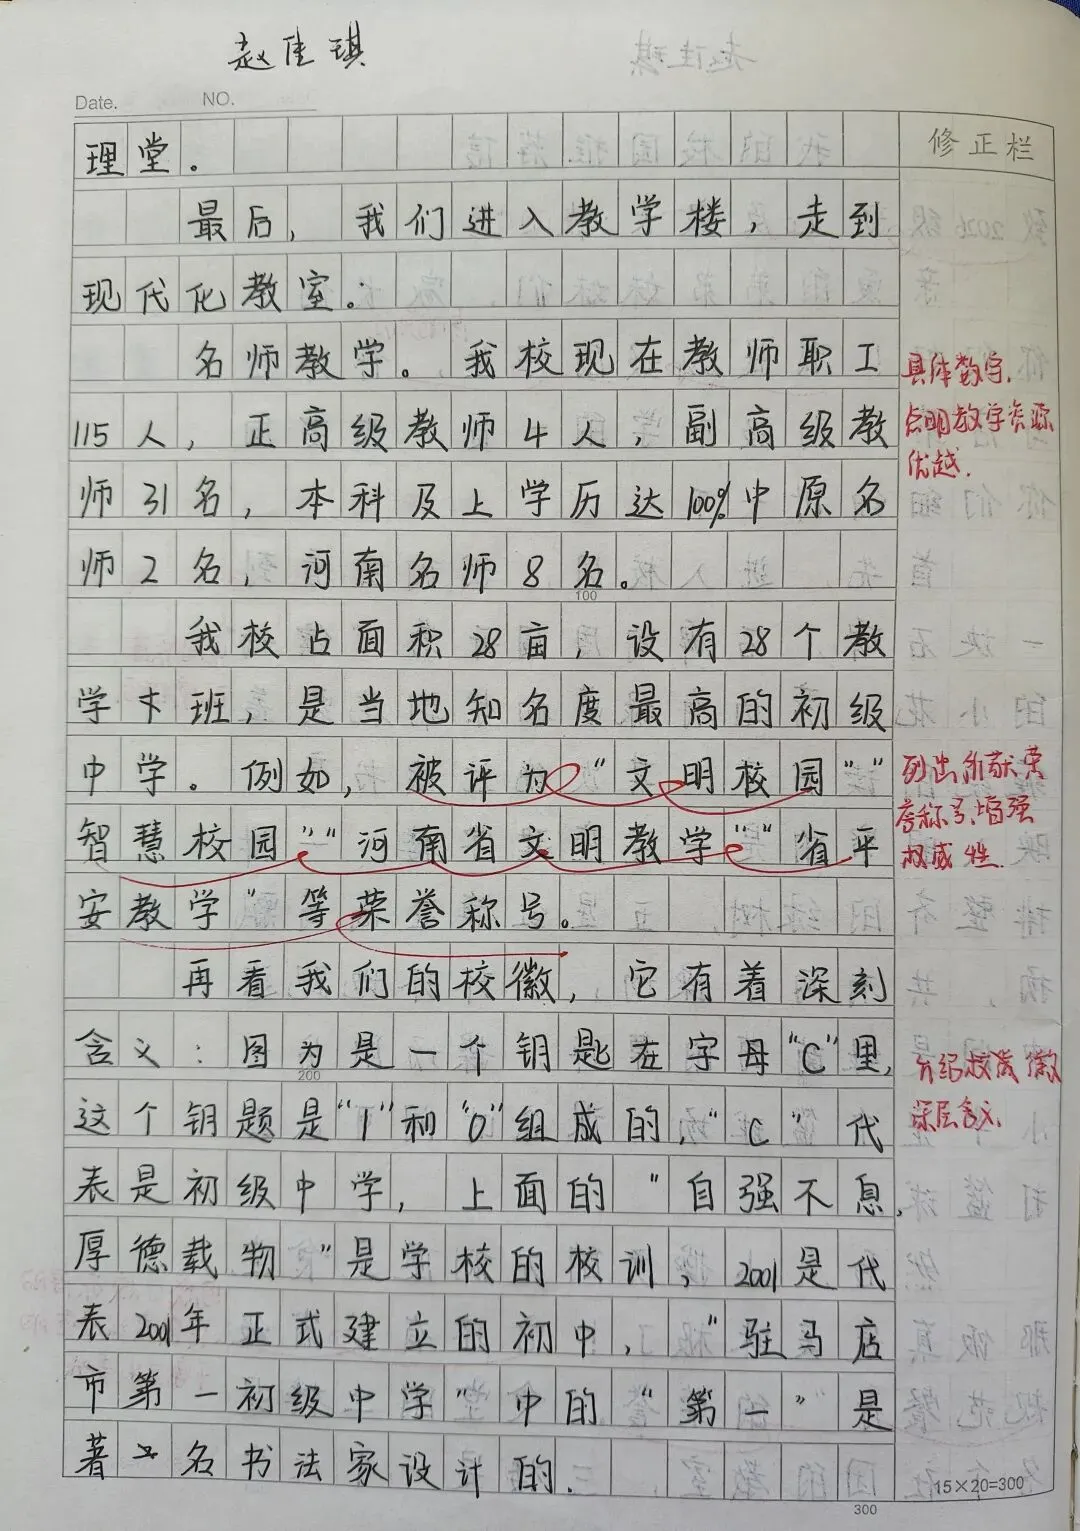 赵佳琪
Date.
NO.
修正栏
理堂。
最后，我们进入教学楼，走到
现代化教室。
名师教学。我校现在教师职工
115人，正高级教师4人，副高级教
师31名，本科及上学历达100%中原名
师2名，河南名师8名。
100
我校占面积28亩，设有28个教
学班，是当地知名度最高的初级
中学。例如，被评为“文明校园”“
智慧校园”“河南省文明教学”“省平
安教学”等荣誉称号。
再看我们的校徽，它有着深刻
含义：图为是一个钥匙在字母“C”里，
200
这个钥题是“1”和“0”组成的，“C”代
表是初级中学，上面的“自强不息，
厚德载物”是学校的校训，2001是代
表2001年正式建立的初中，“驻马店
市第一初级中学”中的“第一”是
著名书法家设计的.
15×20=300
300
具体数字，
点明教学资源
优越.
列出所获荣
誉称号，增强
权威性.
介绍校徽
深层含义.